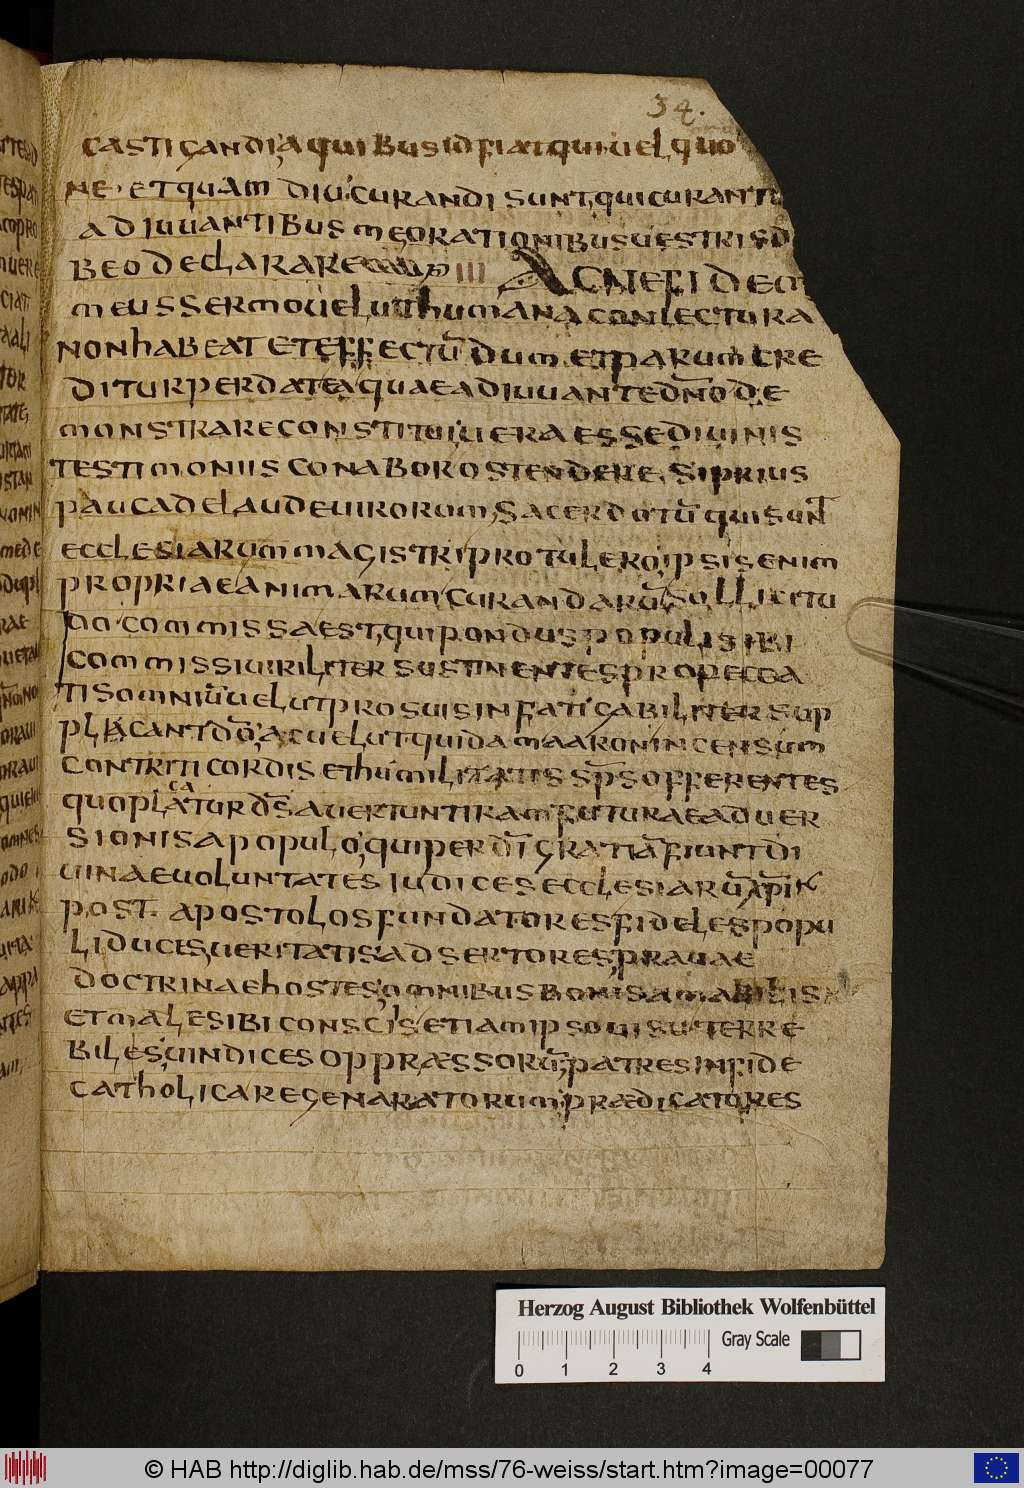 34.
CASTIGANDI, A QUIBUS ID FIAT, QUI UEL QUO
NE, ET QUAM DIU CURANDI SUNT, QUI CURANTUR
ADIUUANTIBUS ME ORATIONIBUS UESTRIS D
BEO DECLARARE III AC NE FIDEM
MEUS SERMO UELUT HUMANA CONIECTURA
NON HABEAT ET EFFECTŪ DUM ET PARUM CRE
DITUR PERDAT EA QUAE ADIUUANTE DN̄O DE
MONSTRARE CONSTITUI UERA ESSE DIUINIS
TESTIMONIIS CONABOR OSTENDERE, SI PRIUS
PAUCA DE LAUDE UIRORUM, SACERDOTŪ QUI SUNT
ECCLESIARUM MAGISTRI PROTULERO, IPSIS ENIM
PROPRIAE ANIMARUM CURANDARŪ SOLLICITU
DO COMMISSA EST, QUI PONDUS POPULI SIBI
COMMISSI UIRILITER SUSTINENTES PRO PECCA
TIS OMNIŪ UELUT PRO SUIS INFATIGABILITER SUP
PLICANT DŌ, AC UELUT QUIDAM AARON INCENSUM
CONTRITI CORDIS ET HUMILITATIS SP̄S OFFERENTES
QUO PLACATUR DS̄ AUERTUNT IRAM FUTURAE ADUER
SIONIS A POPULO, QUI PER DĪ GRATIĀ FIUNT DI
UINAE UOLUNTATES IUDICES ECCLESIARŪ XP̄I
POST APOSTOLOS FUNDATORES FIDELES POPU
LI DUCES, UERITATIS ADSERTORES, PRAUAE
DOCTRINAE HOSTES, OMNIBUS BONIS AMABILIS
ET MALE SIBI CONSCIIS ETIAM IPSO UISU TERRE
BILES, UINDICES OPPRAESSORŪ, PATRES IN FIDE
CATHOLICA REGENARATORUM, PRAEDICATORES
Herzog August Bibliothek Wolfenbüttel
Gray Scale
0 1 2 3 4
© HAB http://diglib.hab.de/mss/76-weiss/start.htm?image=00077